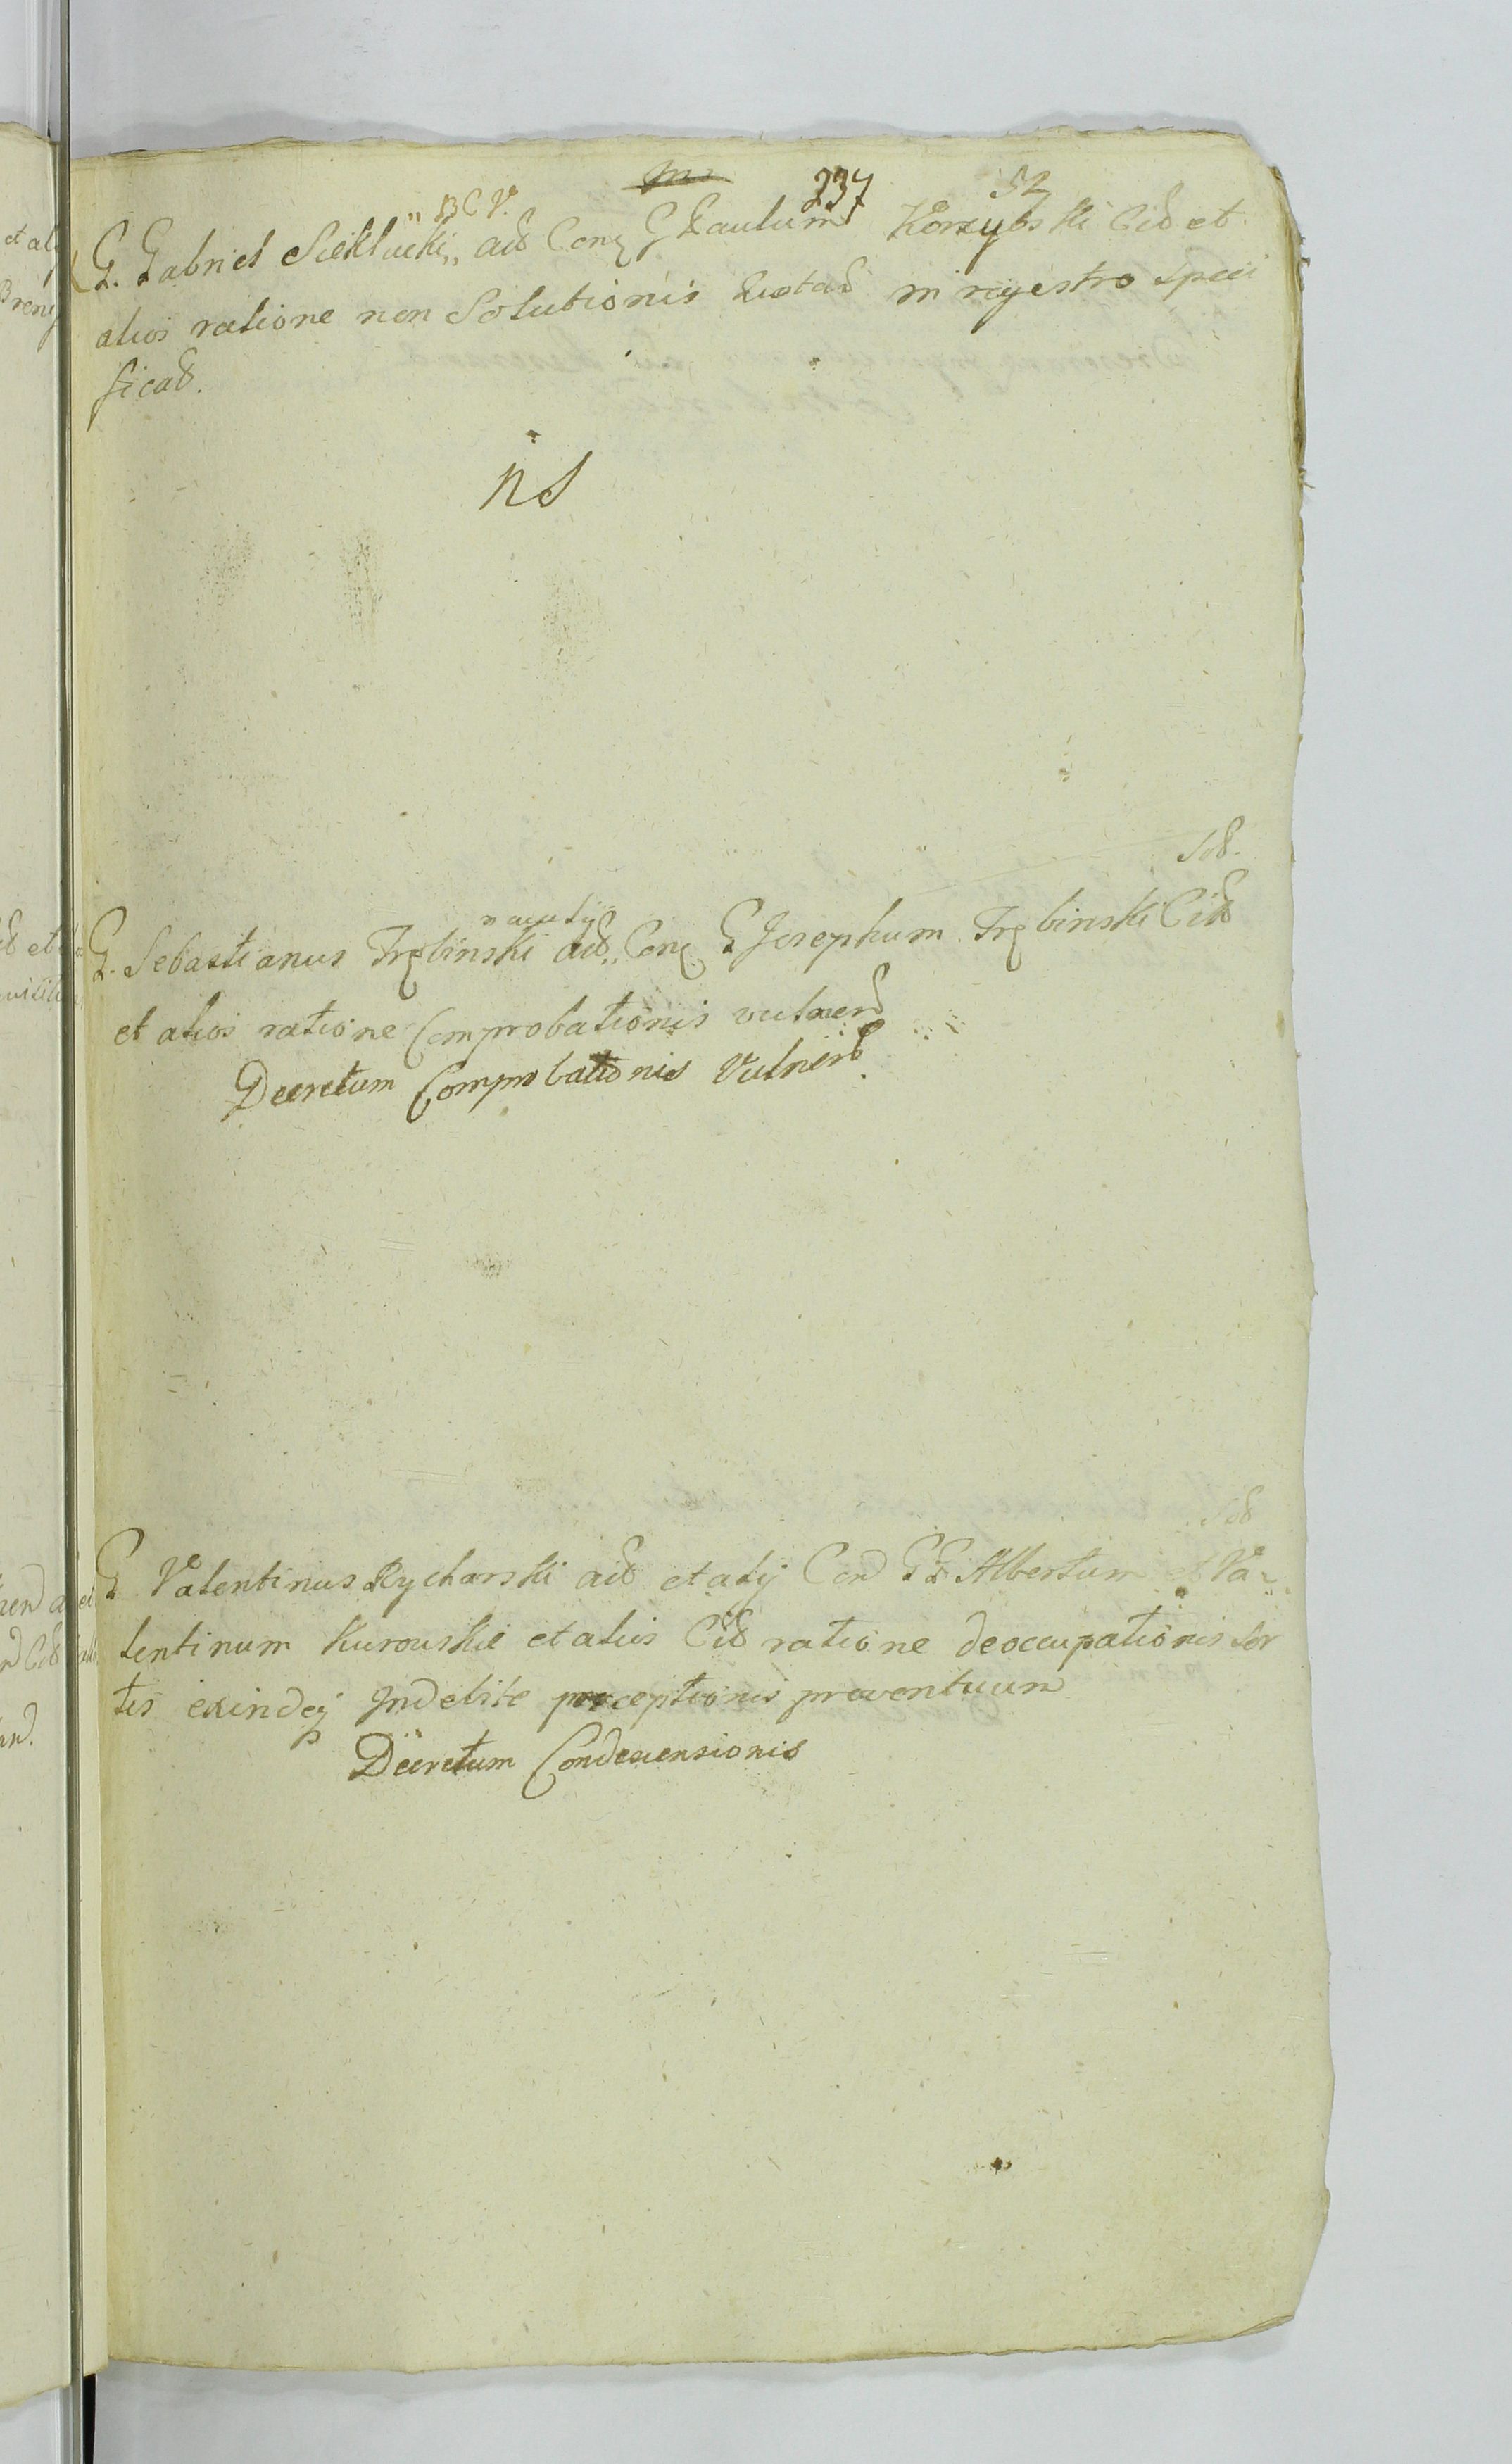 237 52
B C V.
G. Gabriel Siekłucki,, acd Cong G Paulum Korzybski Cid et
alios ratione non Solutionis quotad in regestro speci
ficad.
ns
Sod.
G. Sebastianus Trębinski acd,, Cong G Josephum Trębinski Citd
et alios ratione Comprobationis vulnerd
Decretum Comprobationis Vulnerd
Sod
G Valentinus Rycharski acd et alij Con GG Albertum et Va-
lentinum Kurouskie et alios Citd ratione deoccupationis Sor
tis exindeq Indebite perceptionis proventuum
Decretum Condescensionis